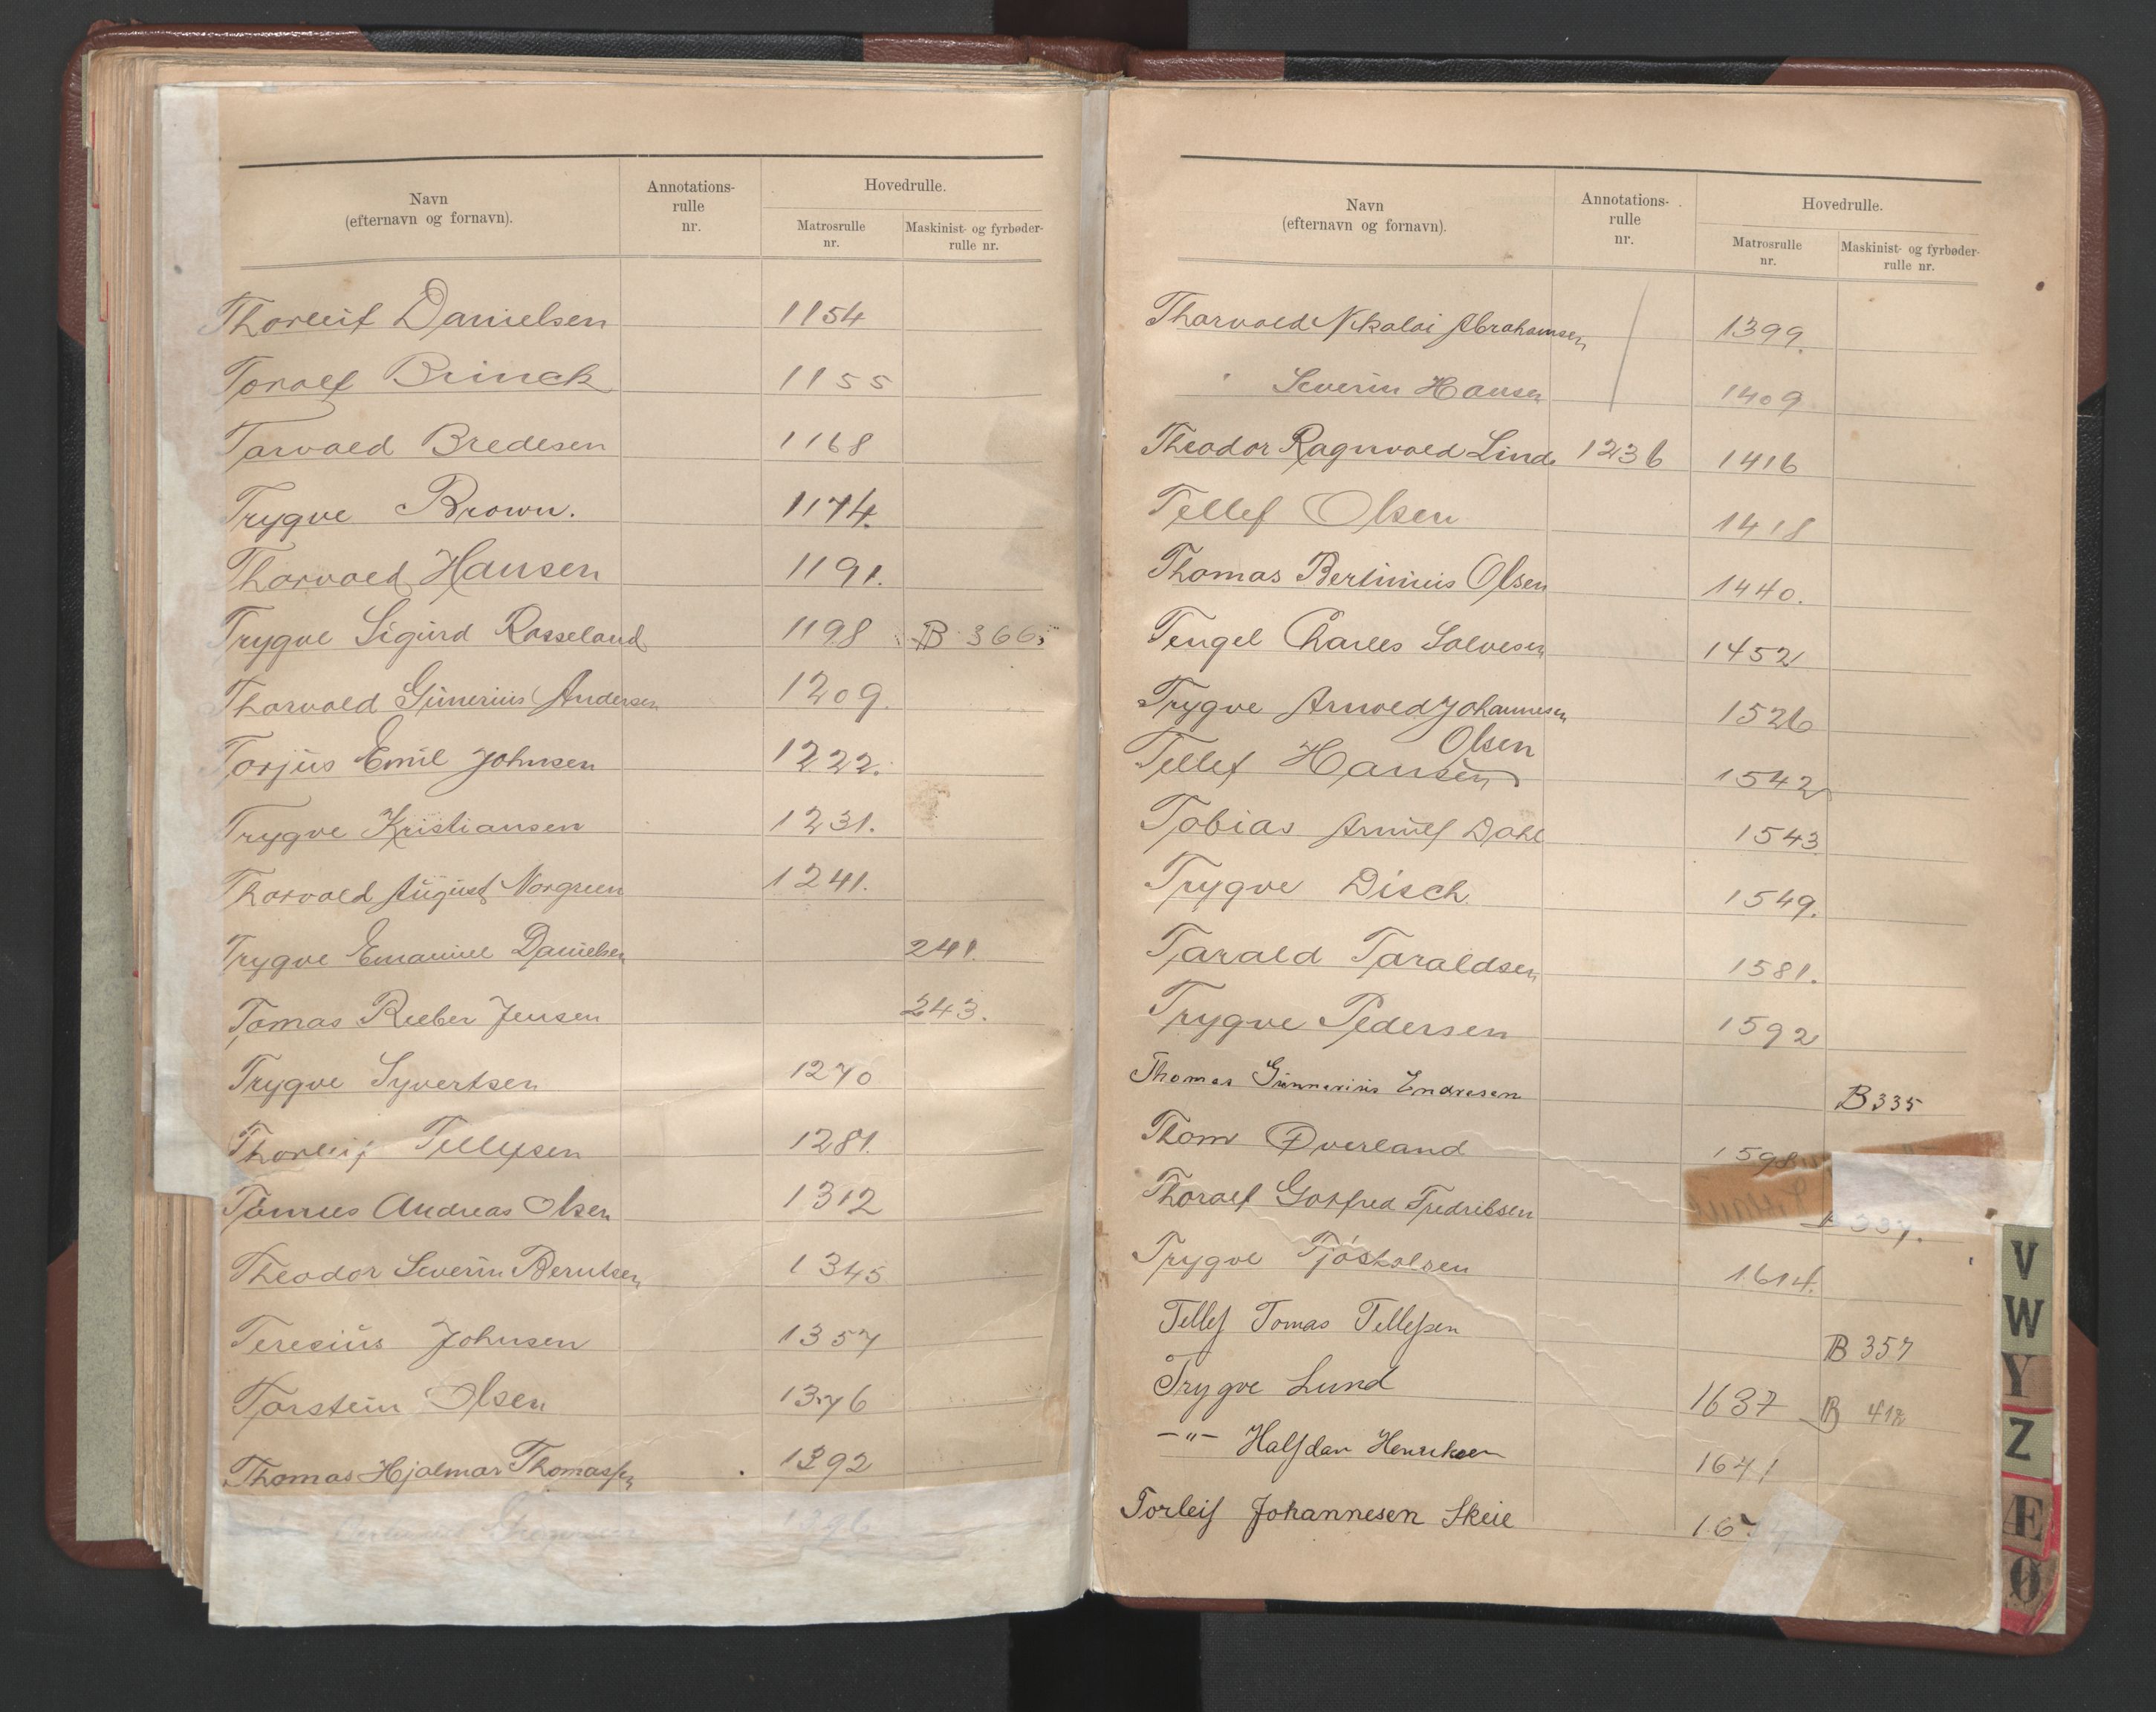 Navn
(efternavn og fornavn).
Annotations-
rulle
nr.
Hovedrulle.
Matrosrulle
nr.
Maskinist- og fyrbøder-
rulle nr.
Thorleif Danielsen 1154
Toralf Brinck 1155
Tarvald Bredesen 1168
Trygve Brown. 1174.
Thorvald Hansen 1191.
Trygve Sigurd Rosseland 1198 B 366
Thorvald Gunerius Andersen 1209.
Torjus Emil Johnsen 1222.
Trygve Kristiansen 1231.
Thorvald August Norgreen 1241.
Trygve Emanuel Danielsen 241.
Tomas Rieber Jensen 243.
Trygve Syvertsen 1270
Thorleif Tellefsen 1281.
Tomes Andreas Olsen 1312
Theodor Severin Berntsen 1345
Teresius Johnsen 1357
Torstein Olsen 1376
Thomas Hjalmar Thomassen 1392
1396
Navn
(efternavn og fornavn).
Annotations-
rulle
nr.
Hovedrulle.
Matrosrulle
nr.
Maskinist- og fyrbøder-
rulle nr.
Thorvald Nikolai Abrahamsen 1399.
" Severin Hansen 1409
Theodor Ragnvald Linde 1236 1416
Tellef Olsen 1418
Thomas Bertinius Olsen 1440.
Tengel Charles Salvesen 1452
Trygve Arnold Johannesen 1526
Olsen
Tellef Hansen 1542
Tobias Arnulf Dahl 1543
Trygve Disch 1549.
Tarald Taraldsen 1581.
Trygve Pedersen 1592
Thomas Gunnerius Endresen B 335
Thom Øverland 1598
Thoralf Gotfred Fredriksen 337.
Trygve Tjøstolsen 1614.
Tellef Tomas Tellefsen B 357
Trygve Lund 1637 B 418
-"- Halfdan Henriksen 1641
Torleif Johannesen Skeie
V
W
Y
Z
Æ
Ø